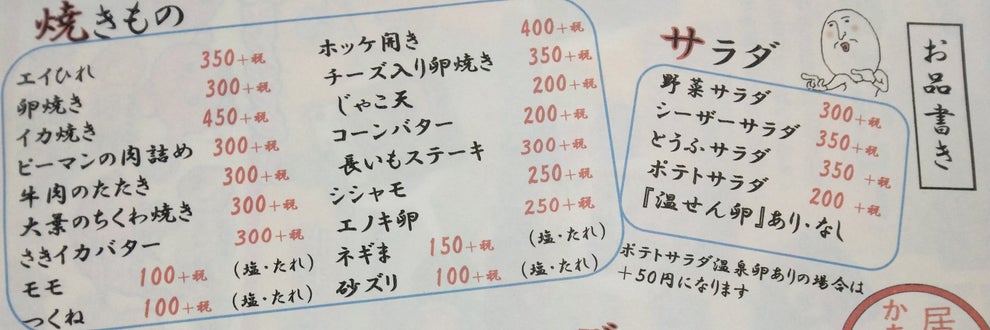 お品書き
焼きもの
エイひれ 350+税
卵焼き 300+税
イカ焼き 450+税
ピーマンの肉詰め 300+税
牛肉のたたき 300+税
大葉のちくわ焼き 300+税
さきイカバター 300+税
モモ 100+税 (塩・たれ)
つくね 100+税 (塩・たれ)
ホッケ開き 400+税
チーズ入り卵焼き 350+税
じゃこ天 200+税
コーンバター 200+税
長いもステーキ 300+税
シシャモ 250+税
エノキ卵 250+税
ネギま 150+税 (塩・たれ)
砂ズリ 100+税 (塩・たれ)
サラダ
野菜サラダ 300+税
シーザーサラダ 350+税
とうふサラダ 350+税
ポテトサラダ 200+税
『温せん卵』あり・なし
ポテトサラダ温泉卵ありの場合は
+50円になります
居